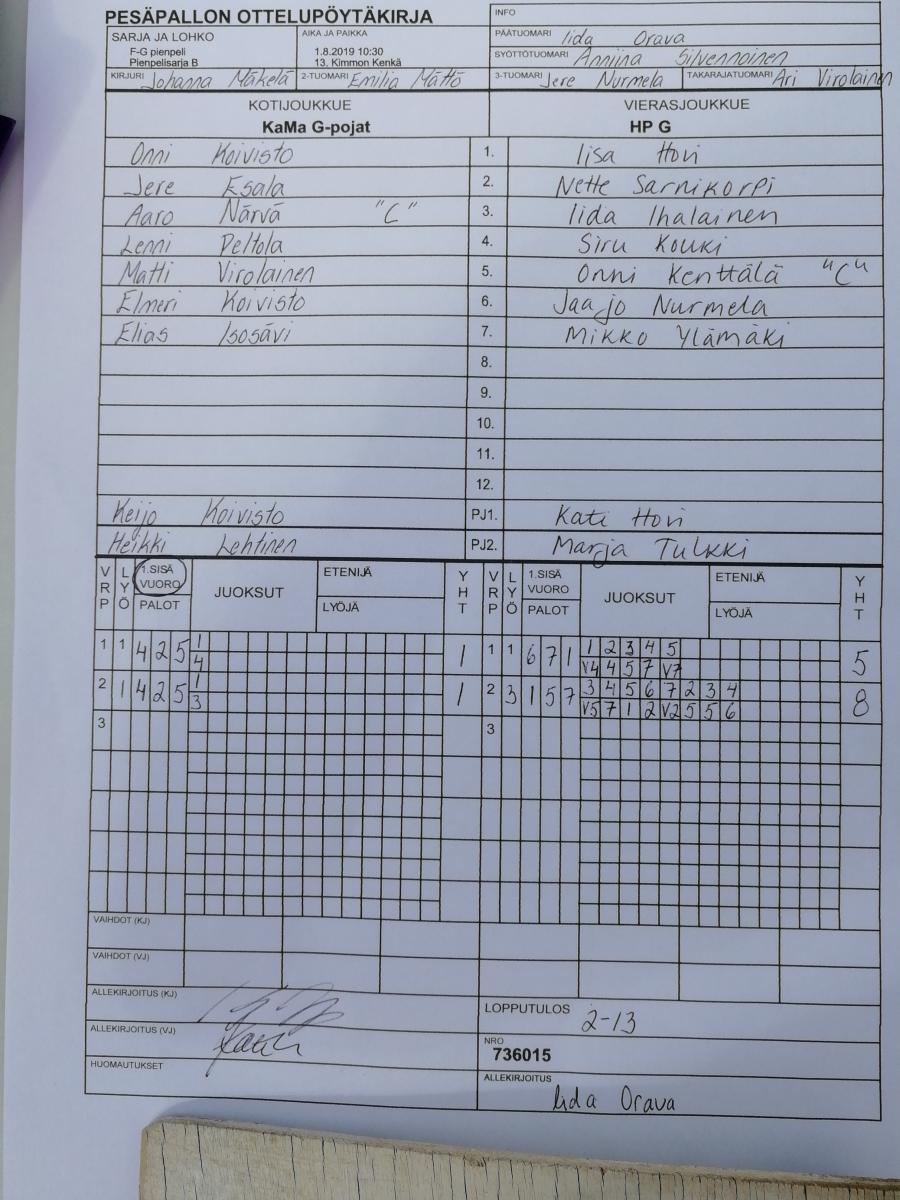 PESÄPALLON OTTELUPÖYTÄKIRJA
INFO
SARJA JA LOHKO
F-G pienpeli
Pienpelisarja B
AIKA JA PAIKKA
1.8.2019 10:30
13. Kimmon Kenkä
PÄÄTUOMARI Iida Orava
SYÖTTÖTUOMARI Anniina Silvennoinen
KIRJURI Johanna Mäkelä 2-TUOMARI Emilia Mättö 3-TUOMARI Jere Nurmela TAKARAJATUOMARI Ari Virolainen
KOTIJOUKKUE VIERASJOUKKUE
KaMa G-pojat HP G
Onni Koivisto 1. Iisa Hovi
Jere Esala 2. Nette Sarnikorpi
Aaro Närvä "C" 3. Iida Ihalainen
Lenni Peltola 4. Siru Kouki
Matti Virolainen 5. Onni Kenttälä "C"
Elmeri Koivisto 6. Jaajo Nurmela
Elias Isosävi 7. Mikko Ylämäki
8.
9.
10.
11.
12.
Keijo Koivisto PJ1. Kati Hovi
Heikki Lehtinen PJ2. Marja Tulkki
VRP LYÖ 1.SISÄ VUORO PALOT JUOKSUT ETENIJÄ LYÖJÄ YHT VRP LYÖ 1.SISÄ VUORO PALOT JUOKSUT ETENIJÄ LYÖJÄ YHT
1 1 4 2 5 1 1 1 1 6 7 1 1 2 3 4 5 5
4 V4 4 5 7 V7
2 1 4 2 5 1 1 2 3 1 5 7 3 4 5 6 7 2 3 4 8
3 V5 7 1 2 V2 5 5 6
3 3
VAIHDOT (KJ)
VAIHDOT (VJ)
ALLEKIRJOITUS (KJ)
LOPPUTULOS 2-13
ALLEKIRJOITUS (VJ)
NRO
736015
HUOMAUTUKSET
ALLEKIRJOITUS
Iida Orava